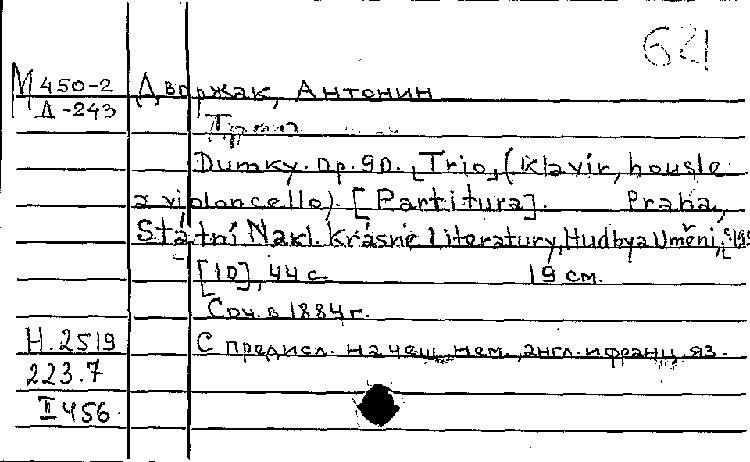 621
М 450-2 Дворжак, Антонин
Д-243
Трио
Dumky. Op. 90. [Trio] (klavír, housle
a violoncello). [Partitura]. Praha,
Státní Nakl. Krásné Literatury, Hudby a Umění,
[10], 44 с. 19 см.
Соч. в 1884 г.
Н. 2519 С предисл. на чеш., нем., англ. и франц. яз.
223.7
II 456